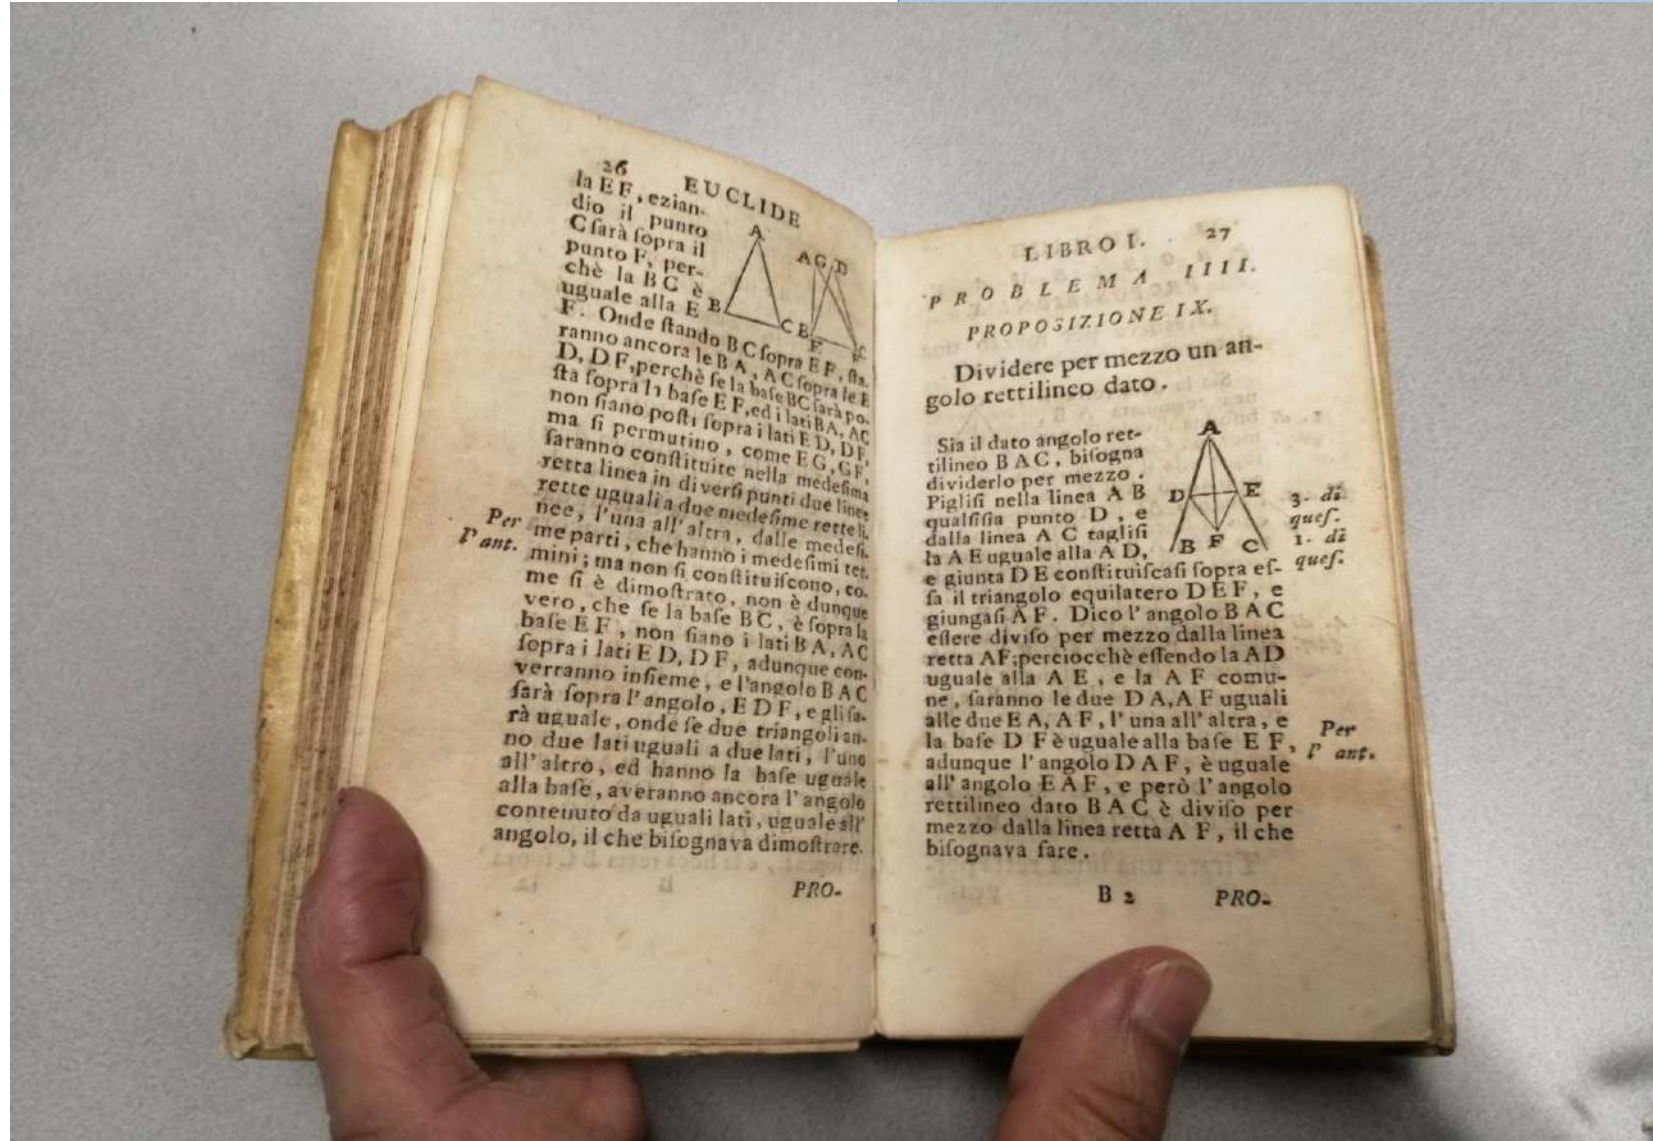 26 EUCLIDE
la EF, ezian-
dio il punto
C ſarà ſopra il
punto F, per-
chè la BC è
uguale alla E
F. Onde ſtando BC ſopra EF, ſta-
ranno ancora le BA, AC ſopra le E
D, DF, perchè ſe la baſe BC ſarà po-
ſta ſopra la baſe EF, ed i lati BA, AC
non ſiano poſti ſopra i lati ED, DF,
ma ſi permutino, come EG, GF,
ſaranno conſtituite nella medeſima
retta linea in diverſi punti due linee
rette uguali a due medeſime rette li-
nee, l'una all'altra, dalle medeſi-
me parti, che hanno i medeſimi ter-
mini; ma non ſi conſtituiſcono, co-
me ſi è dimoſtrato, non è dunque
vero, che ſe la baſe BC, è ſopra la
baſe EF, non ſiano i lati BA, AC
ſopra i lati ED, DF, adunque con-
verranno inſieme, e l'angolo BAC
ſarà ſopra l'angolo, EDF, e gli ſa-
rà uguale, onde ſe due triangoli an-
no due lati uguali a due lati, l'uno
all'altro, ed hanno la baſe uguale
alla baſe, averanno ancora l'angolo
contenuto da uguali lati, uguale all'
angolo, il che biſognava dimoſtrare.
PRO-
Per
l'ant.
A
B
C
A G D
B
E
F
LIBRO I. 27
PROBLEMA IIII.
PROPOSIZIONE IX.
Dividere per mezzo un an-
golo rettilineo dato.
Sia il dato angolo ret-
tilineo BAC, biſogna
dividerlo per mezzo.
Pigliſi nella linea AB
qualſiſia punto D, e
dalla linea AC tagliſi
la AE uguale alla AD,
e giunta DE conſtituiſcaſi ſopra eſ-
ſa il triangolo equilatero DEF, e
giungaſi AF. Dico l'angolo BAC
eſſere diviſo per mezzo dalla linea
retta AF; perciocchè eſſendo la AD
uguale alla AE, e la AF comu-
ne, ſaranno le due DA, AF uguali
alle due EA, AF, l'una all'altra, e
la baſe DF è uguale alla baſe EF,
adunque l'angolo DAF, è uguale
all'angolo EAF, e però l'angolo
rettilineo dato BAC è diviſo per
mezzo dalla linea retta AF, il che
biſognava fare.
B 2 PRO-
A
D E
B F C
3. di
queſ.
1. di
queſ.
Per
l'ant.